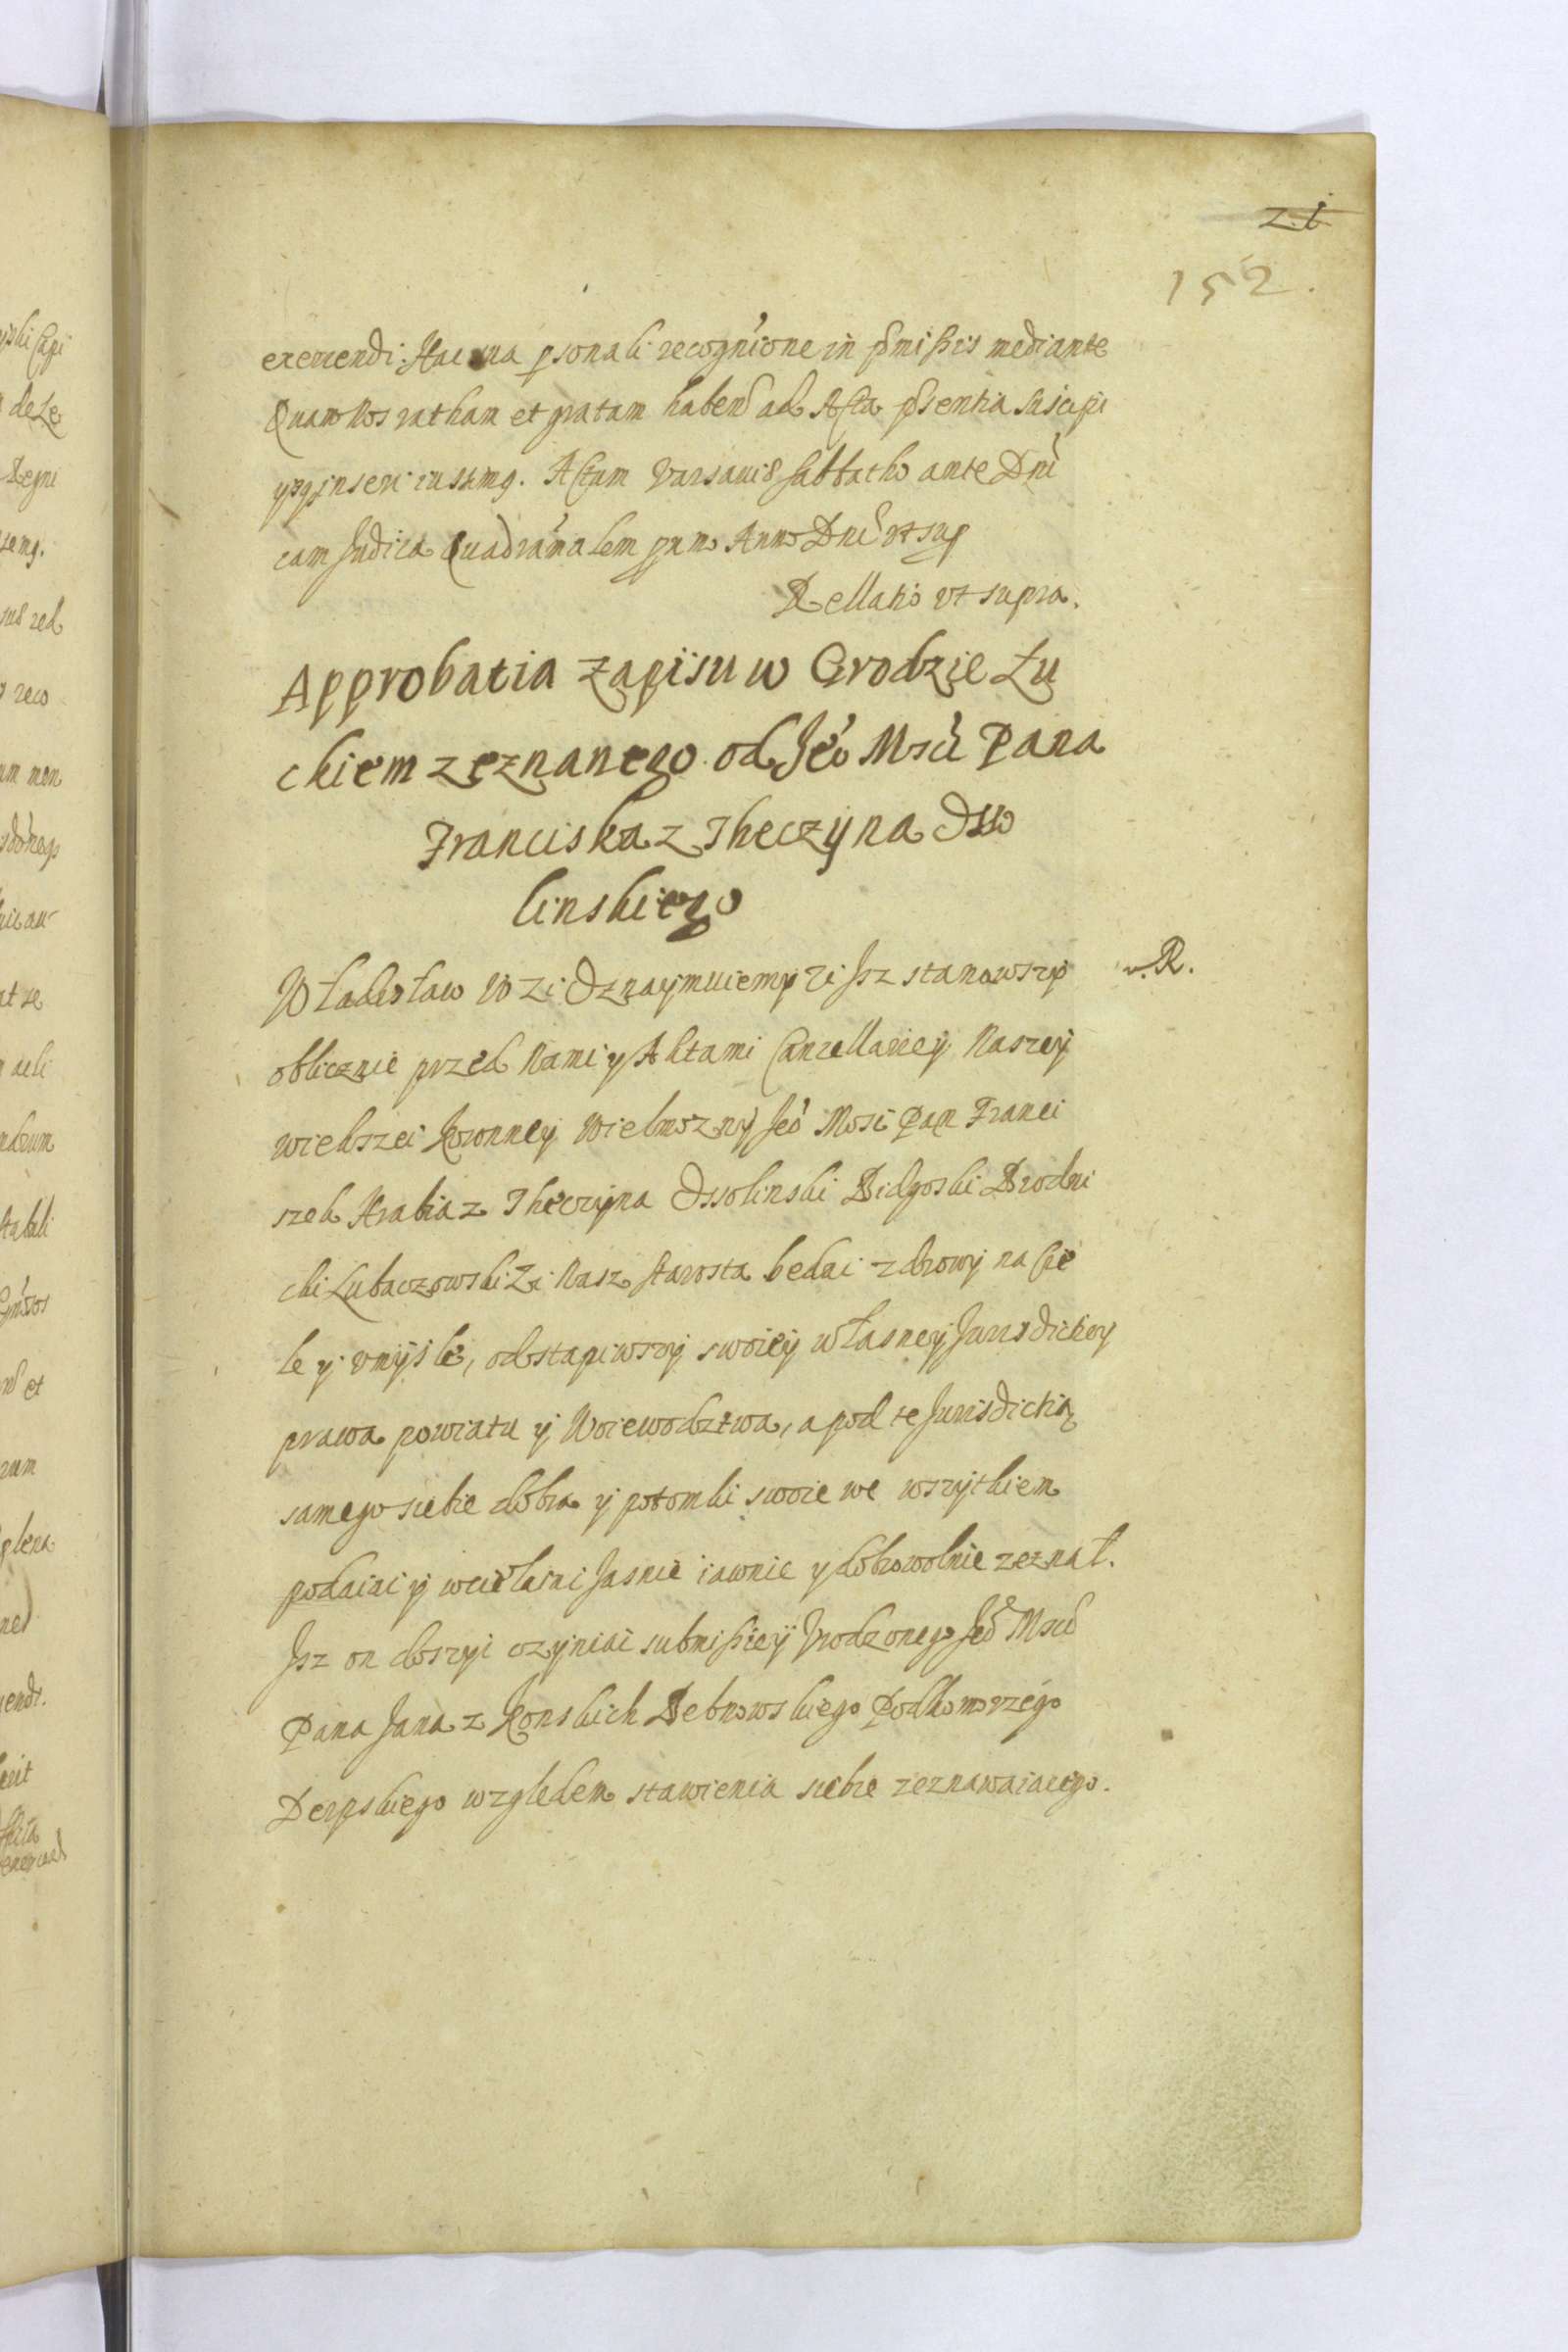 152.
exercendi. Hac sua psonali recogn̓ione in p̃missis mediante
Quam Nos ratham et gratam haben̄ ad Acta p̃sentia suscipi
ysqz inseri iussimq. Actum Varsaviӕ Sabbatho ante Dni
cam Judica Quadran̓alem pm̃ Anno Dni vt sup
Rellatio vt supra.
Approbatia zapisu w Grodzie Łu
ckiem zeznanego od Jeo̓ Msci Pana
Franciska z Theczyna Osso
linskiego
Władisław IV Zi Oznaymuiemy Ti Isz stanowszy
R.
oblicznie przed Nami y Aktami Cancellariey Naszey
wiekszei Koronney Wielmozny Jeo̓ Mosc Pan Franci
szek Hrabia z Theczyna Ossolinski Bidgoski Brodni
cki Lubaczowski Zi Nasz Starosta bedac zdrowy na Cie
le y vmysle, odstapiwszy swoiey własney Jurisdictiey
prawa powiatu y Woiewodztwa, a pod te Jurisdictią
samego siebie dobra y potomki swoie we wszytkiem
podaiąi y wcielaiąi Jasnie iawnie y dobrowolnie zeznał.
Isz on doszyi czyniąi submissiey Vrodzonego Jeo̓ Msci
Pana Jana z Konskich Debrowskiego Podkomorzego
Derpskiego wzgledem stawienia siebie zeznawaiącego.